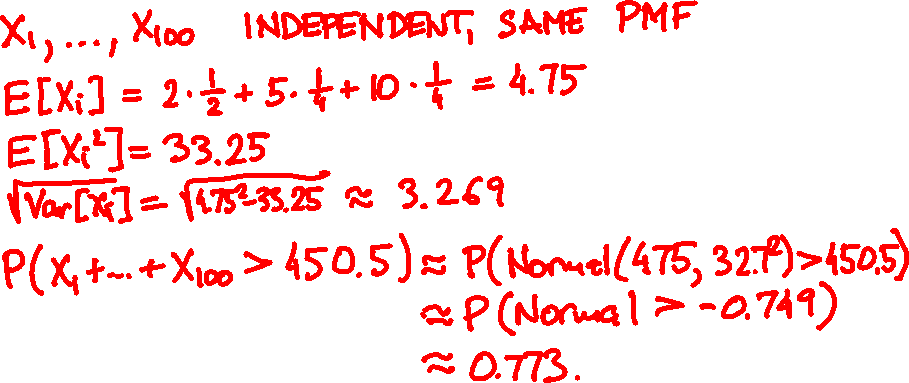 X₁, ..., X₁₀₀ INDEPENDENT, SAME PMF
E[Xᵢ] = 2·½ + 5·¼ + 10·¼ = 4.75
E[Xᵢ²] = 33.25
√Var[Xᵢ] = √4.75²-33.25 ≈ 3.269
P(X₁+...+X₁₀₀ > 450.5) ≈ P(Normal(475, 32.7²) > 450.5)
≈ P(Normal > -0.749)
≈ 0.773.